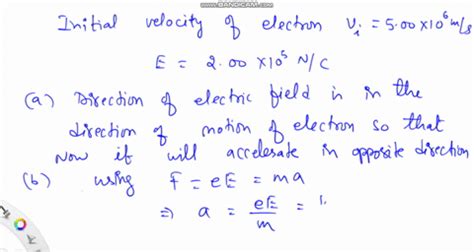 www.BANDICAM.com
Initial velocity of electron Vi = 5.00 × 10⁶ m/s
E = 2.00 × 10⁵ N/C
(a) Direction of electric field is in the
direction of motion of electron so that
Now it will accelerate in opposite direction
(b) using F = eE = ma
⇒ a = eE/m = 1